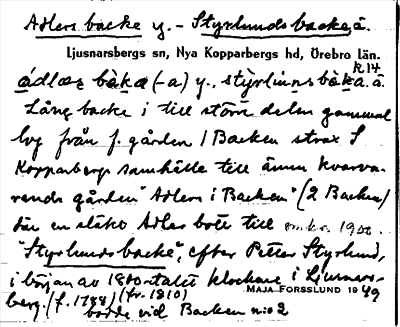 Adlers backe y. – Styrlunds backe, ä.
Ljusnarsbergs sn, Nya Kopparbergs hd, Örebro län.
R 14.
ádlæʂ bàkə (-a) y., stýrlúnns bàka. ä.
Lång backe i till större delen gammal
lvg från f. gården / Backen strax S
Kopparbergs samhälle till ännu kvarva-
rande gården "Adlers i Backen" (2 Backen)
där en släkt Adler bott till omkr. 1900.
"Styrlunds backe", efter Petter Styrlund,
i början av 1800-talet klockare i Ljusnars-
berg. (f. 1788) (fr. 1810)
MAJA FORSSLUND 1949
bodde vid Backen n:o 2